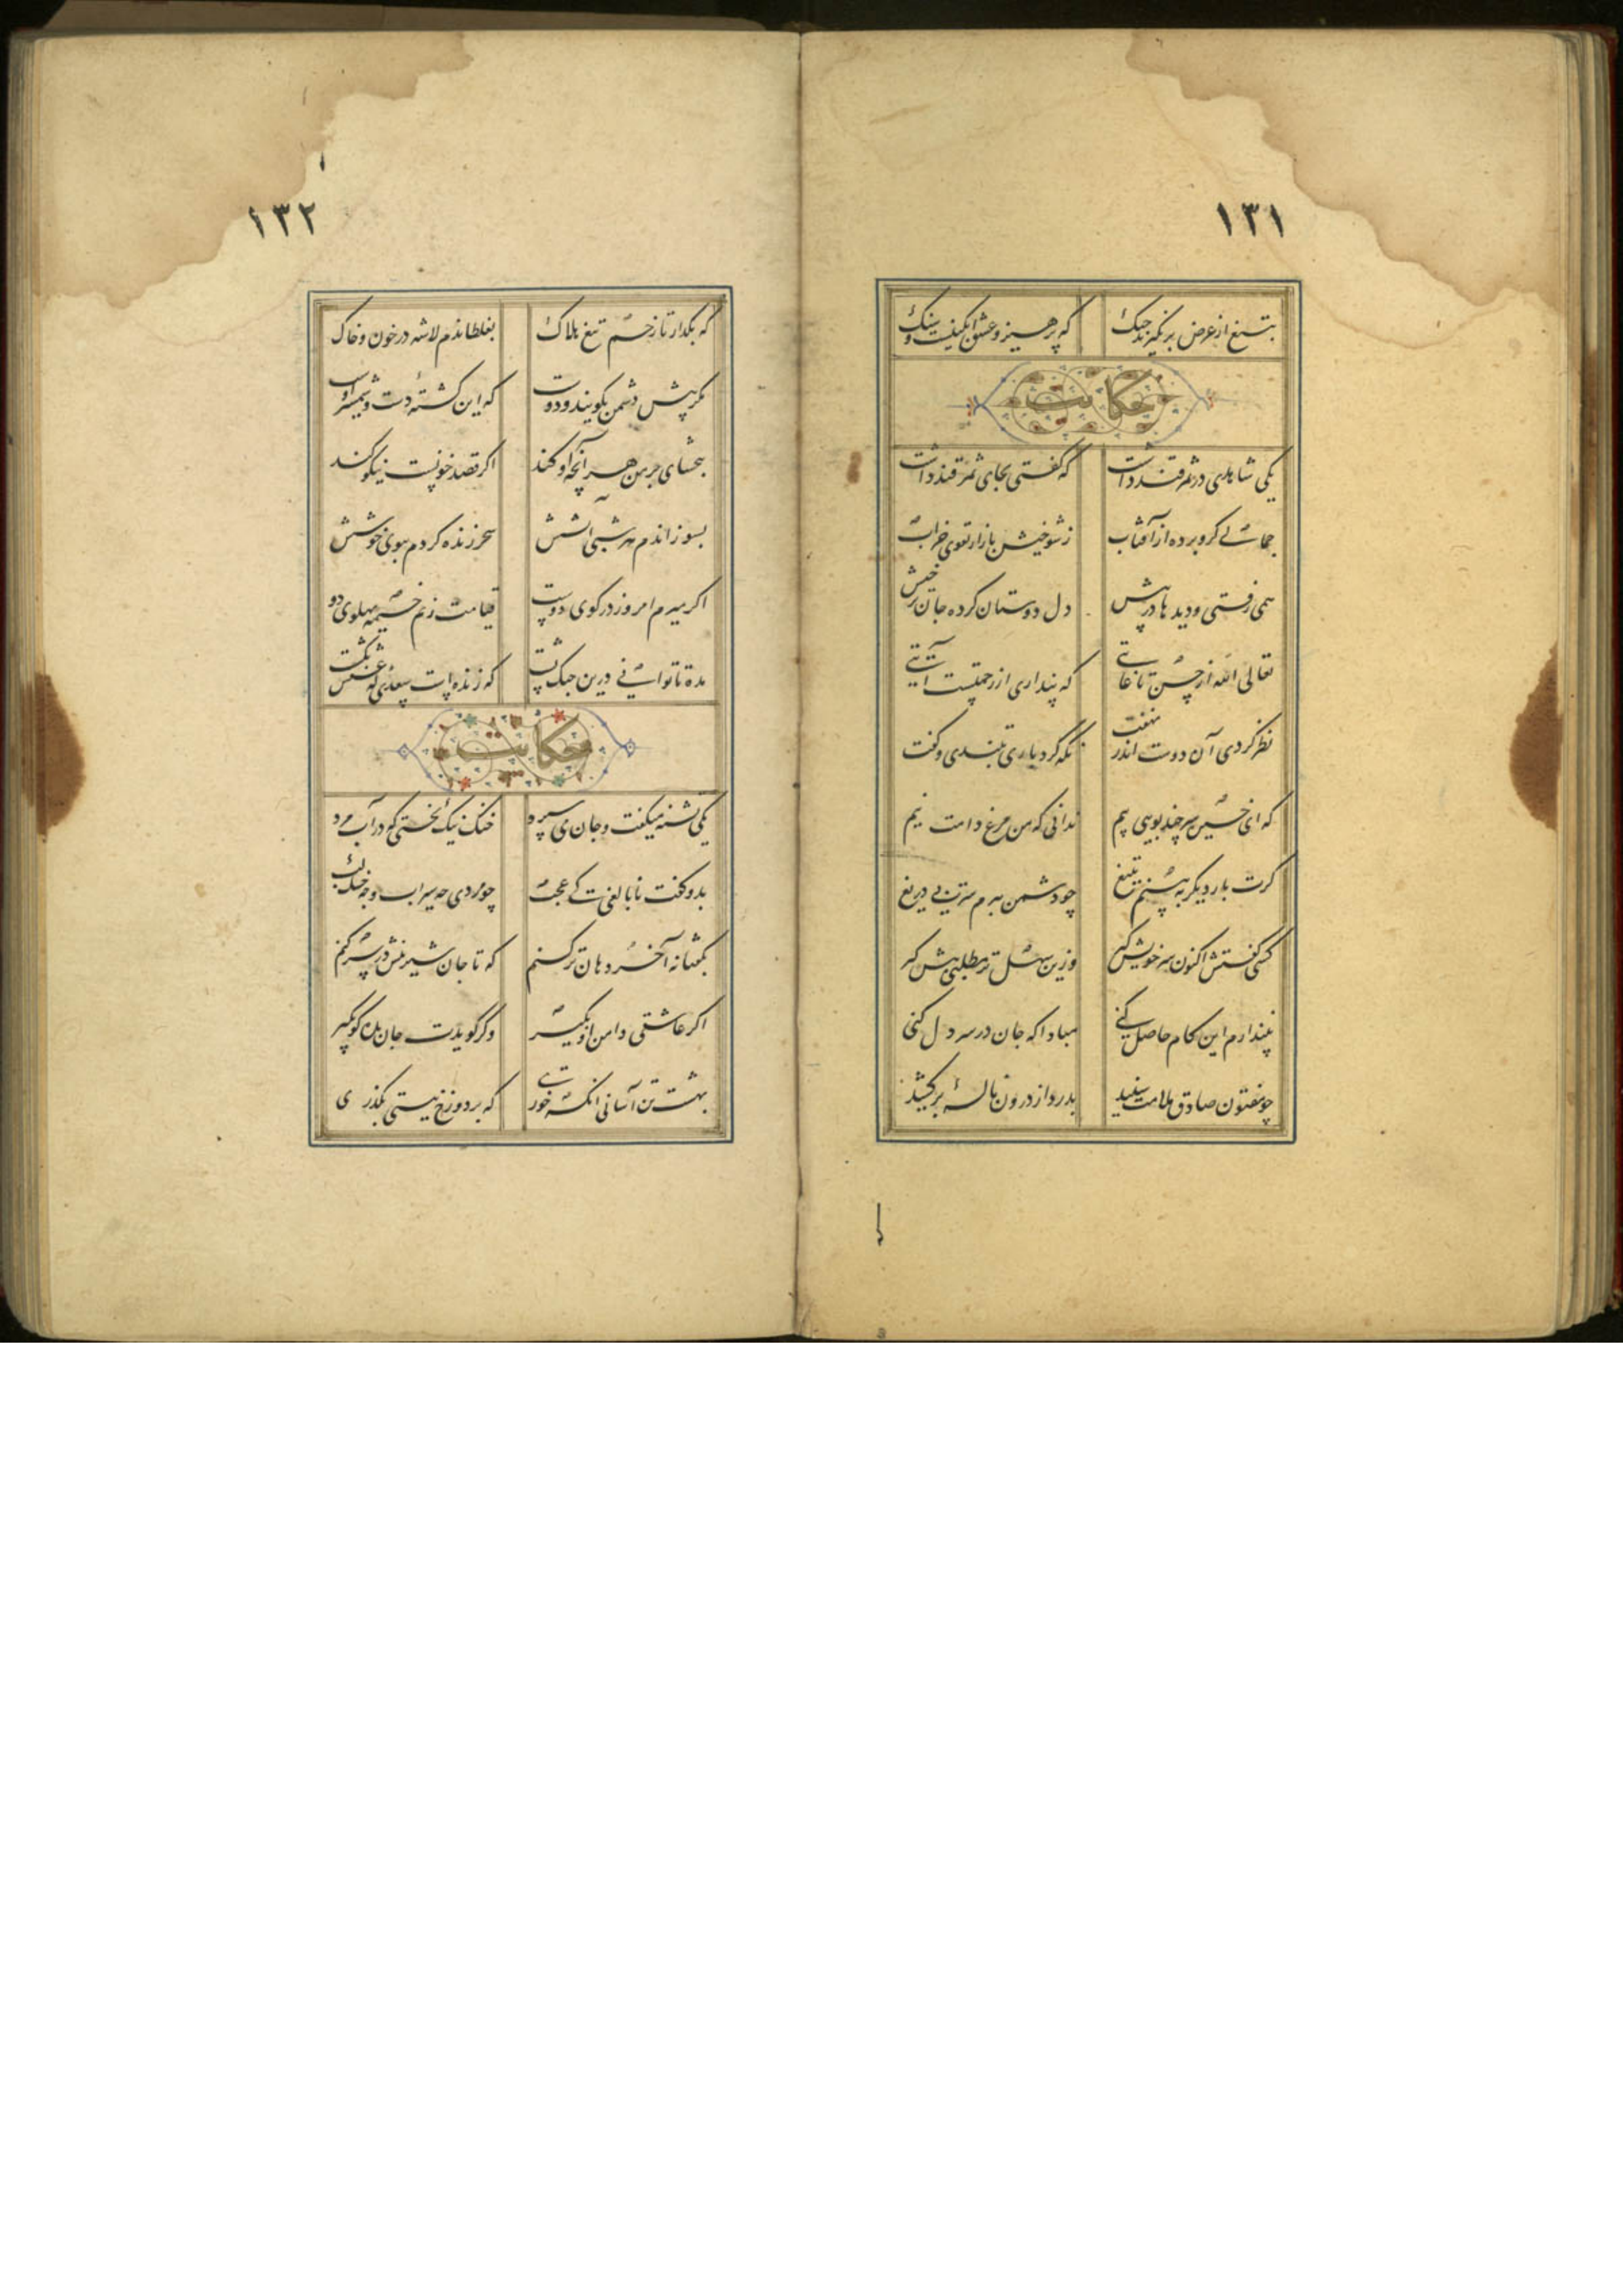 ۱۳۱
بتیغ از غرض بر نگیرند چنگ که پرهیز و عشق آبگینست و سنگ
حکایت
یکی شاهدی در سمرقند داشت که گفتی بجای سمر قند داشت
جمالی گرو برده از آفتاب ز شوخیش بازار تقوی خراب
همی رفتی و دیدها در پیش دل دوستان کرده جان برخیش
تعالی الله از حسن تا غایتی که پنداری از رحمتست آیتی
نظر کردی آن دوست اندر نهفت نگه کرد باری بتندی و گفت
که ای خیره سر چند پویی پیم ندانی که من مرغ دامت نیم
گرت بار دیگر ببینم بتیغ چو دشمن ببرم سرت بی دریغ
کسی گفتش اکنون سر خویش گیر وزین سهل تر مطلبی پیش گیر
نپندارم این کام حاصل کنی مبادا که جان در سر دل کنی
چو مفتون صادق ملامت شنید بدرد از درون ناله برکشید
۱۳۲
که بگذار تا زخم تیغ هلاک بغلطاندم لاشه در خون و خاک
مگر پیش دشمن بگویند و دوست که این کشته دست و شمشیر اوست
ببخشای بر من هر آنچه او کند اگر قصد خونست نیکو کند
بسوزاندم هر شبی آتشش سحر زنده گردم ببوی خوشش
اگر میرم امروز در کوی دوست قیامت زنم خیمه پهلوی دو
مده تا توانی درین جنگ پشت که زنده است سعدی که عشقش بکشت
حکایت
یکی تشنه میگفت و جان می سپرد خنک نیک بختی که در آب مرد
بدو گفت نابالغی کی عجب چو مردی چه سیراب و چه خشک لب
بگفتا نه آخر دهان تر کنم که تا جان شیرینش در سر کنم
اگر عاشقی دامن او بگیر وگر گویدت جان بده گو بگیر
بهشت تن آسانی انگه خوری که بر دوزخ نیستی بگذری